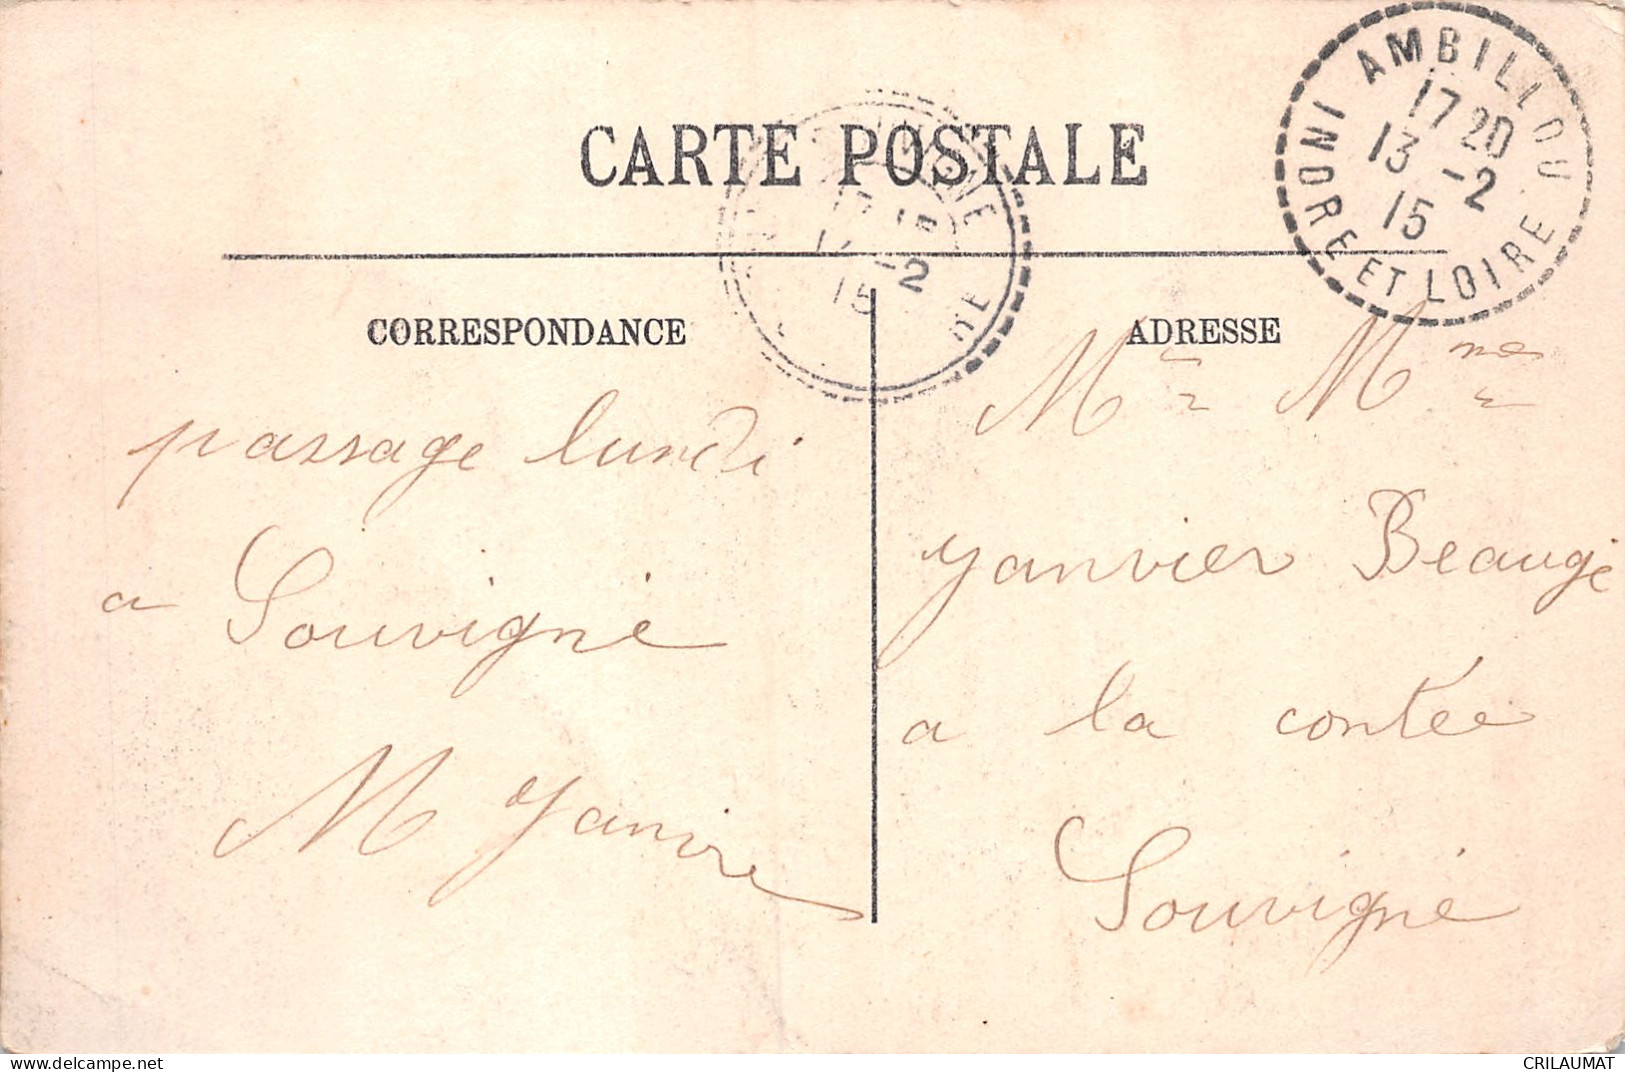 CARTE POSTALE
AMBILLOU
17 20
13 -2
15
INDRE ET LOIRE
-2
15
CORRESPONDANCE
passage lundi
a Souvigné
M Janvie
ADRESSE
Mr Mme
Janvier Beaugé
a la contée
Souvigné
www.delcampe.net
CRILAUMAT